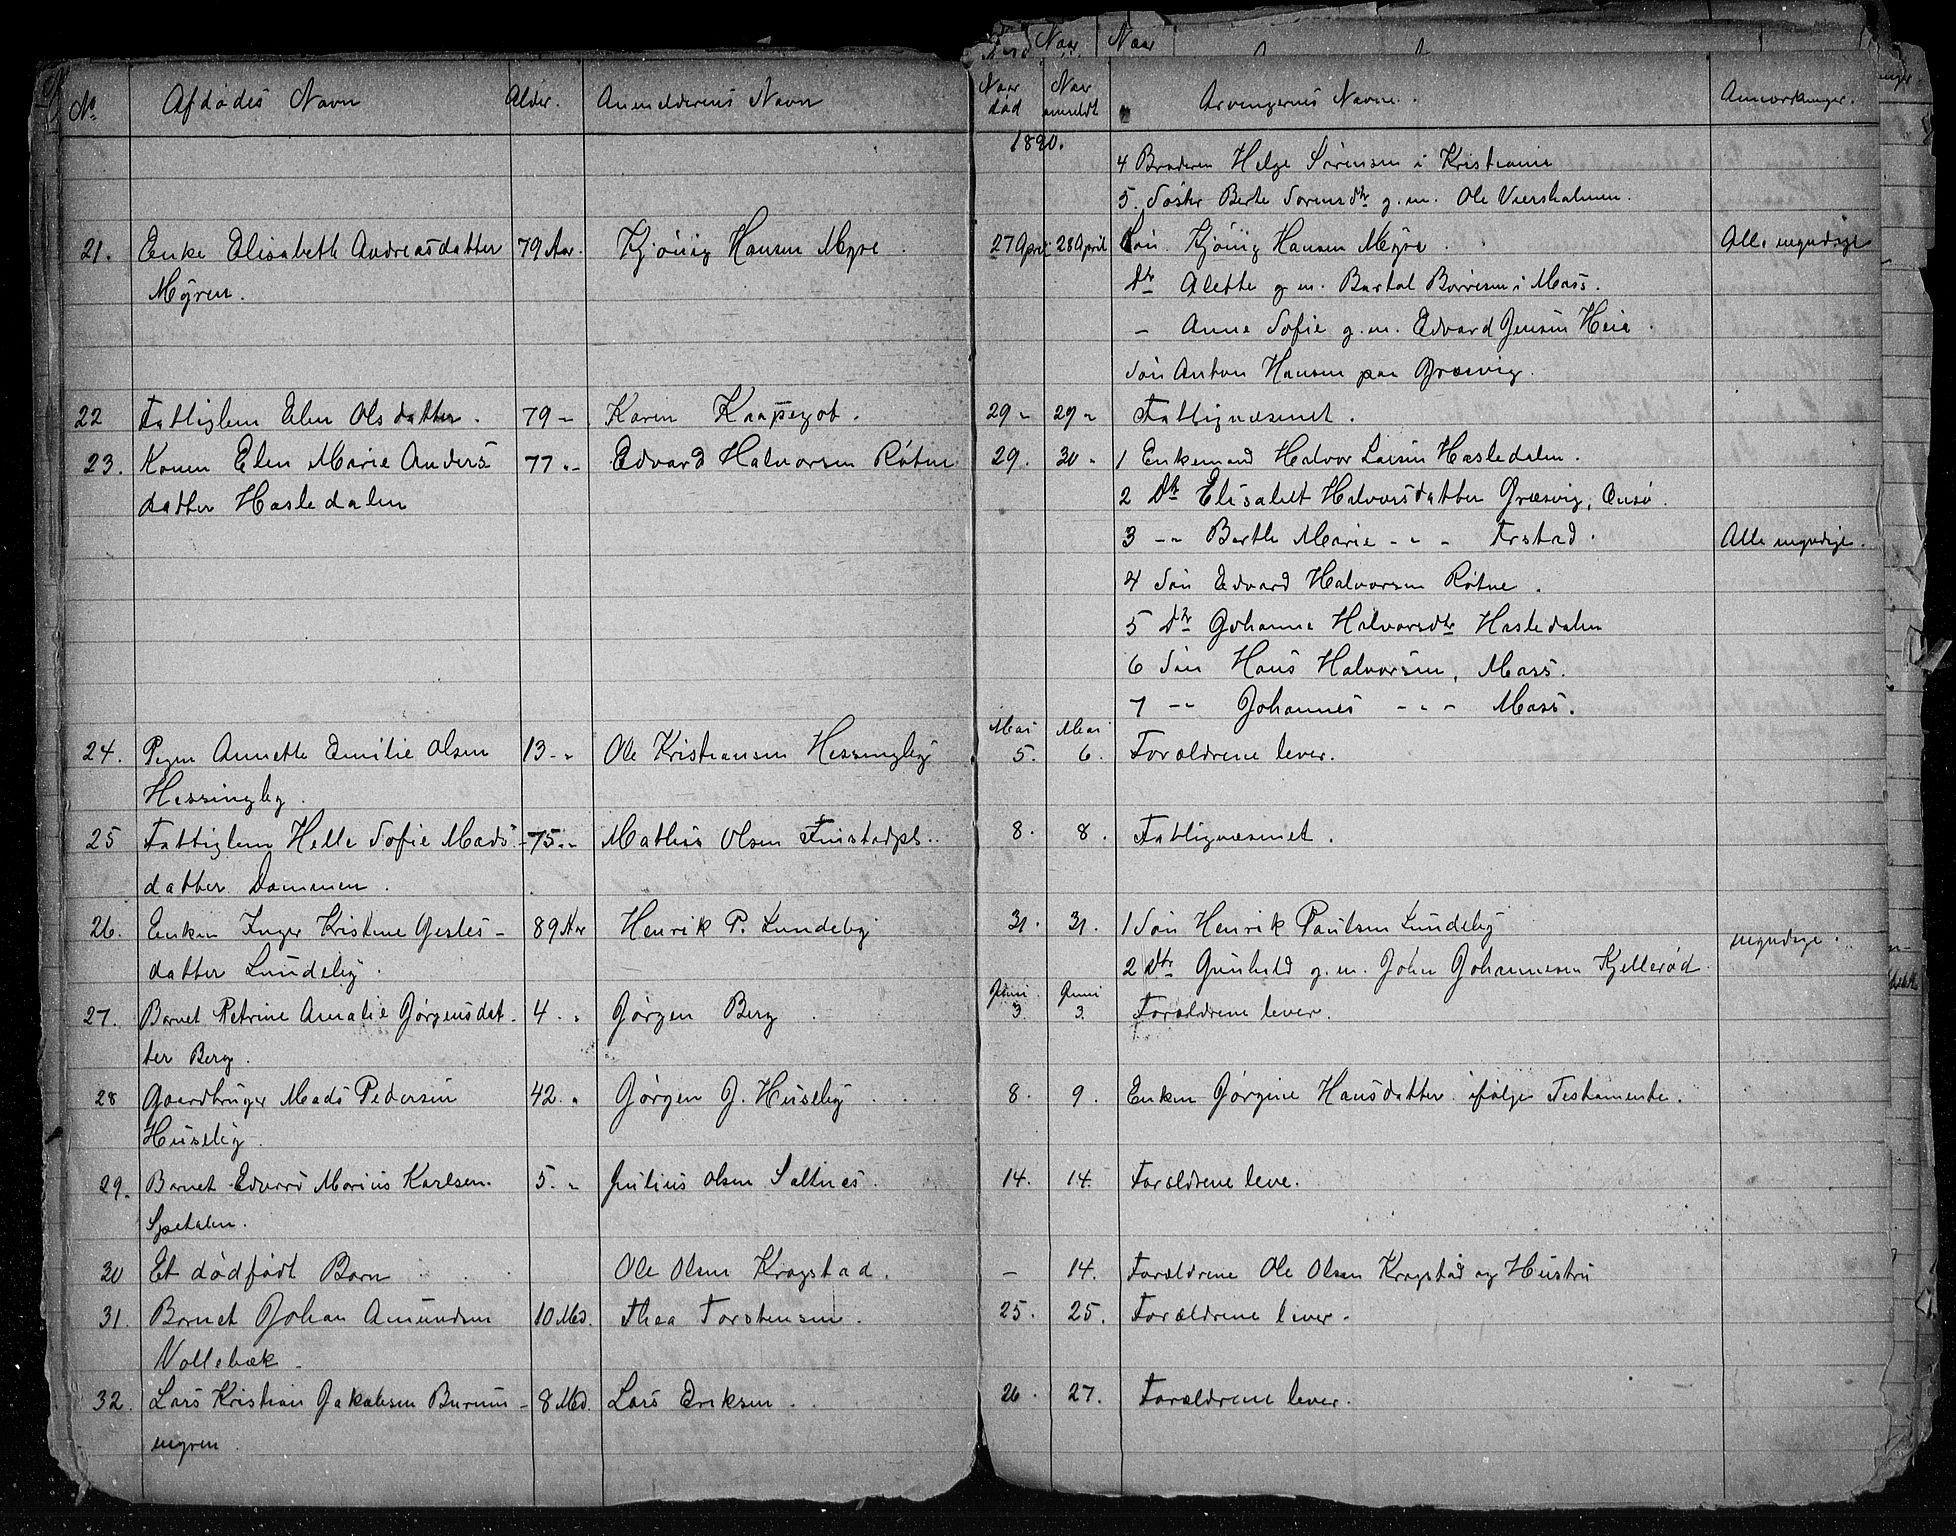 No Afdødes Navn Alder. Anmelderens Navn Naar død Naar anmeldt Arvingernes Navne. Anmærkninger.
1890.
4 Broderen Helge Sørensen i Kristiania
5. Søster Berte Sorensdtr g.m. Ole Viersholmen.
21. Enke Elisabeth Andreasdatter 79 Aar. Kjönig Hansen Myre 27 April 28 April Søn. Kjönig Hansen Myre. Alle myndige
Myren. Dtr Alette g m. Bertol Börresen i Moss.
– Anne Sofie g.m. Edvard Jensen Heia.
Søn Anton Hansen paa Græsvig.
22 Fattiglem Elen Olsdatter. 79 – Karin Knapegot. 29 " 29 " Fattigvæsenet.
23. Konen Elen Marie Anders 77 "– Edvard Halvorsen Røtne 29. 30 " 1 Enkemand Halvor Larsen Hasledalen.
datter Hasledalen 2 Dtr Elisabet Halvorsdatter Græsvig, Onsø.
3 –" Berthe Marie – " – Frstad. Alle myndige.
4 Søn Edvard Halvorsen Røtne.
5 Dtr Johanne Halvorsdtr Hasledalen
6 Søn Hans Halvorsen, Moss.
7 –" Johannes – " – Moss.
Mai Mai
24. Pigen Annette Emilie Olsen 13 – " Ole Kristiansen Hessingby 5. 6. Forældrene lever.
Hessingby.
25 Fattiglem Helle Sofie Mads – 75. "– Mathias Olsen Finstadpl.. 8. 8. Fattigvæsenet.
datter Dammen.
26. Enken Inger Kristine Gjerles – 89 Aar Henrik P. Lundeby 31. 31. 1 Søn Henrik Paulsen Lundeby
datter Lundeby. 2 Dtr Gunhild g.m. John Johannesen Kjellerød. myndige.
Juni. Juni
27. Barnet Petrine Amalie Jørgensdat. 4. " Jørgen Berg 3. 3. Forældrene lever.
ter Berg.
28 Gaardbruger Mads Pedersen 42. " Jørgen J. Huseby 8. 9. Enken Jørgine Hansdatter ifølge Testamente.
Huseby.
29. Barnet Edvard Marius Karlsen. 5. " Julius Olsen Saltnes. 14. 14. Forældrene leve.
Spetalen.
30 Et dødfødt Barn Ole Olsen Kragstad. – 14. Forældrene Ole Olsen Kragstad og Hustru
31. Barnet Johan Amundsen 10 Md. Thea Torstensen. 25. 25. Forældrene lever.
Vollebæk –
32. Lars Kristian Jakobsen Burum – 8 Md. Lars Eriksen. 26. 27. Forældrene lever.
myren.